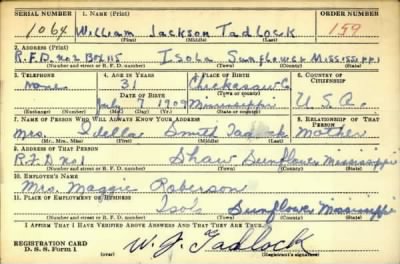 SERIAL NUMBER 1. NAME (Print) ORDER NUMBER
1064 William Jackson Tadlock 159
(First) (Middle) (Last)
2. ADDRESS (Print)
R.F.D. No 2 Box 115 Isola Sunflower Mississippi
(Number and street or R. F. D. number) (Town) (County) (State)
3. TELEPHONE 4. AGE IN YEARS 5. PLACE OF BIRTH 6. COUNTRY OF CITIZENSHIP
none 31 Chickasaw Co
DATE OF BIRTH (Town or county)
July 9 1909 Mississippi U.S.A.
(Exchange) (Number) (Mo.) (Day) (Yr.) (State or country)
7. NAME OF PERSON WHO WILL ALWAYS KNOW YOUR ADDRESS 8. RELATIONSHIP OF THAT PERSON
Mrs. Idella Smith Tadlock Mother
(Mr., Mrs., Miss) (First) (Middle) (Last)
9. ADDRESS OF THAT PERSON
R.F.D no 1 Shaw Sunflower Mississippi
(Number and street or R. F. D. number) (Town) (County) (State)
10. EMPLOYER'S NAME
Mrs. Maggie Roberson
11. PLACE OF EMPLOYMENT OR BUSINESS
Isola Sunflower Mississippi
(Number and street or R. F. D. number) (Town) (County) (State)
I AFFIRM THAT I HAVE VERIFIED ABOVE ANSWERS AND THAT THEY ARE TRUE.
REGISTRATION CARD
D. S. S. Form 1 W. J. Tadlock
(Registrant's signature)